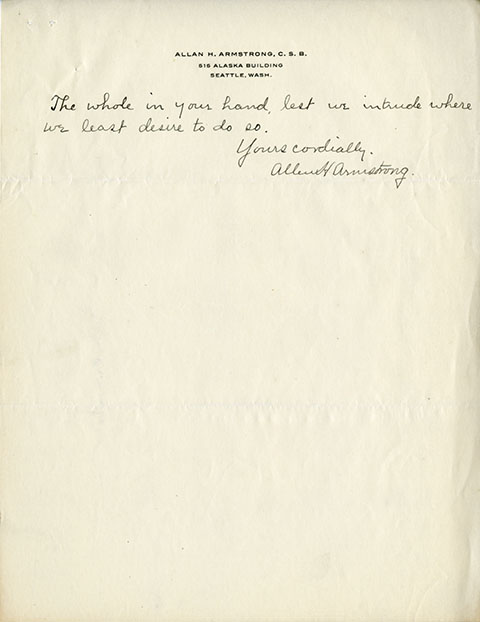 ALLAN H. ARMSTRONG, C. S. B.
516 ALASKA BUILDING
SEATTLE, WASH.
The whole in your hand, lest we intrude where
we least desire to do so.
Yours cordially.
Allan H Armstrong.